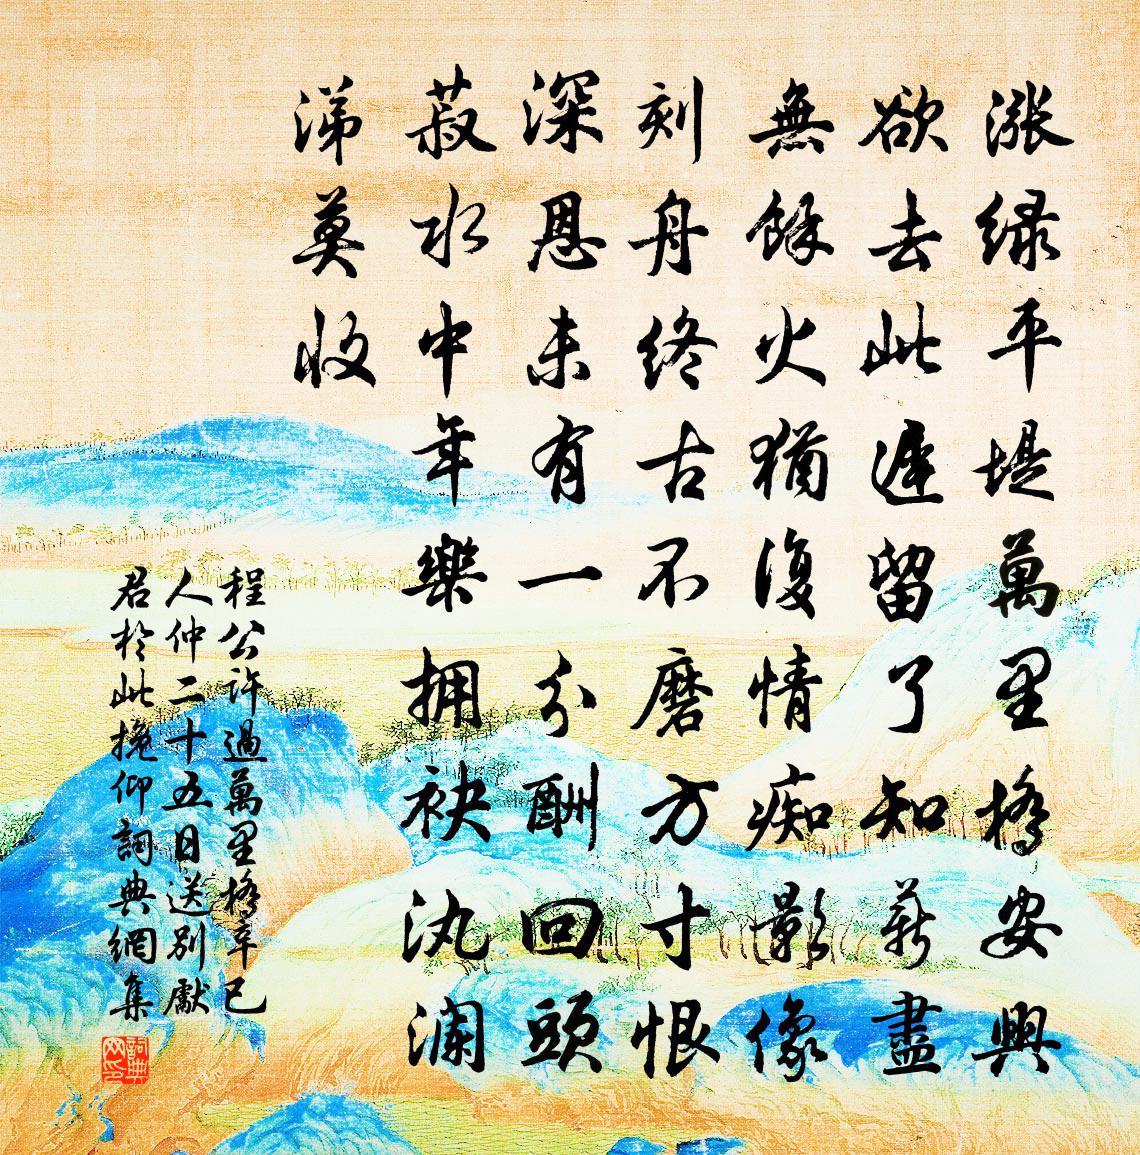 漲緑平堤萬里橋安輿
欲去此遲留了知薪盡
無餘火猶復情痴影像
刻舟終古不磨方寸恨
深恩未有一分酬回頭
菽水中年樂拥袂汍瀾
涕莫收
程公許過萬里橋辛巳
人仲二十五日送别獻
君於此挽仰詞典網集
詞典网印